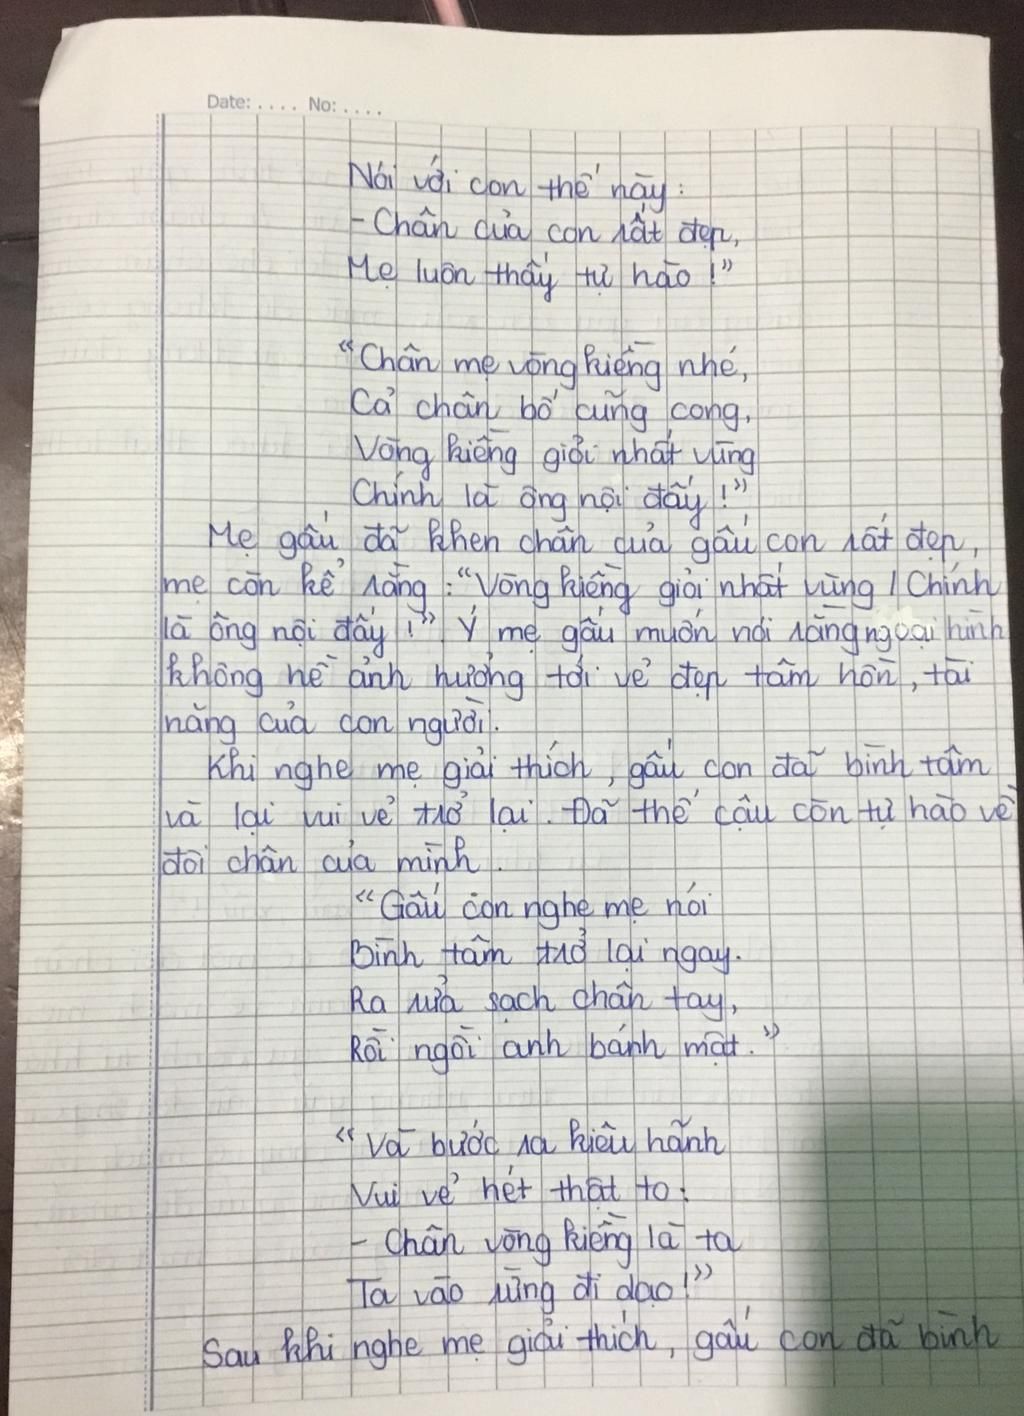 Date: .... No: ....
Nói với con thế này:
- Chân của con rất đẹp,
Mẹ luôn thấy tự hào !”
“Chân mẹ vòng kiềng nhé,
Cả chân bố cũng cong,
Vòng kiềng giỏi nhất vùng
Chính là ông nội đấy !”
Mẹ gấu đã khen chân của gấu con rất đẹp,
mẹ còn kể rằng : “Vòng kiềng giỏi nhất vùng / Chính
là ông nội đấy !” Ý mẹ gấu muốn nói rằng ngoại hình
không hề ảnh hưởng tới vẻ đẹp tâm hồn, tài
năng của con người.
Khi nghe mẹ giải thích, gấu con đã bình tâm
và lại vui vẻ trở lại. Đã thế cậu còn tự hào về
đôi chân của mình.
“Gấu con nghe mẹ nói
Bình tâm trở lại ngay.
Ra rửa sạch chân tay,
Rồi ngồi anh bánh mật.”
“Và bước ra kiêu hãnh
Vui vẻ hét thật to:
- Chân vòng kiềng là ta
Ta vào rừng đi dạo!”
Sau khi nghe mẹ giải thích, gấu con đã bình